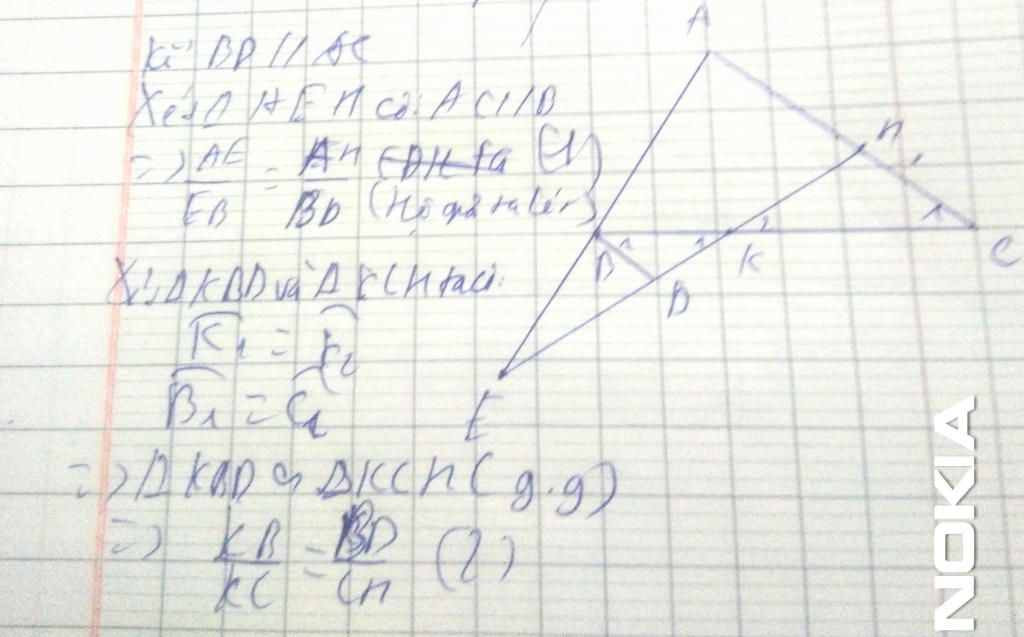 Kẻ BD // AC
Xét Δ AEH có: AC // B
=> AE/EB = AH/BD (Hệ quả ta lét) (1)
Xét Δ KBD và Δ KCH ta có:
K1 = K2
B1 = C1
=> Δ KBD ∽ Δ KCH (g.g)
=> KB/KC = BD/CH (2)
A
H
1
1
C
B
1
1
K
2
D
E
NOKIA